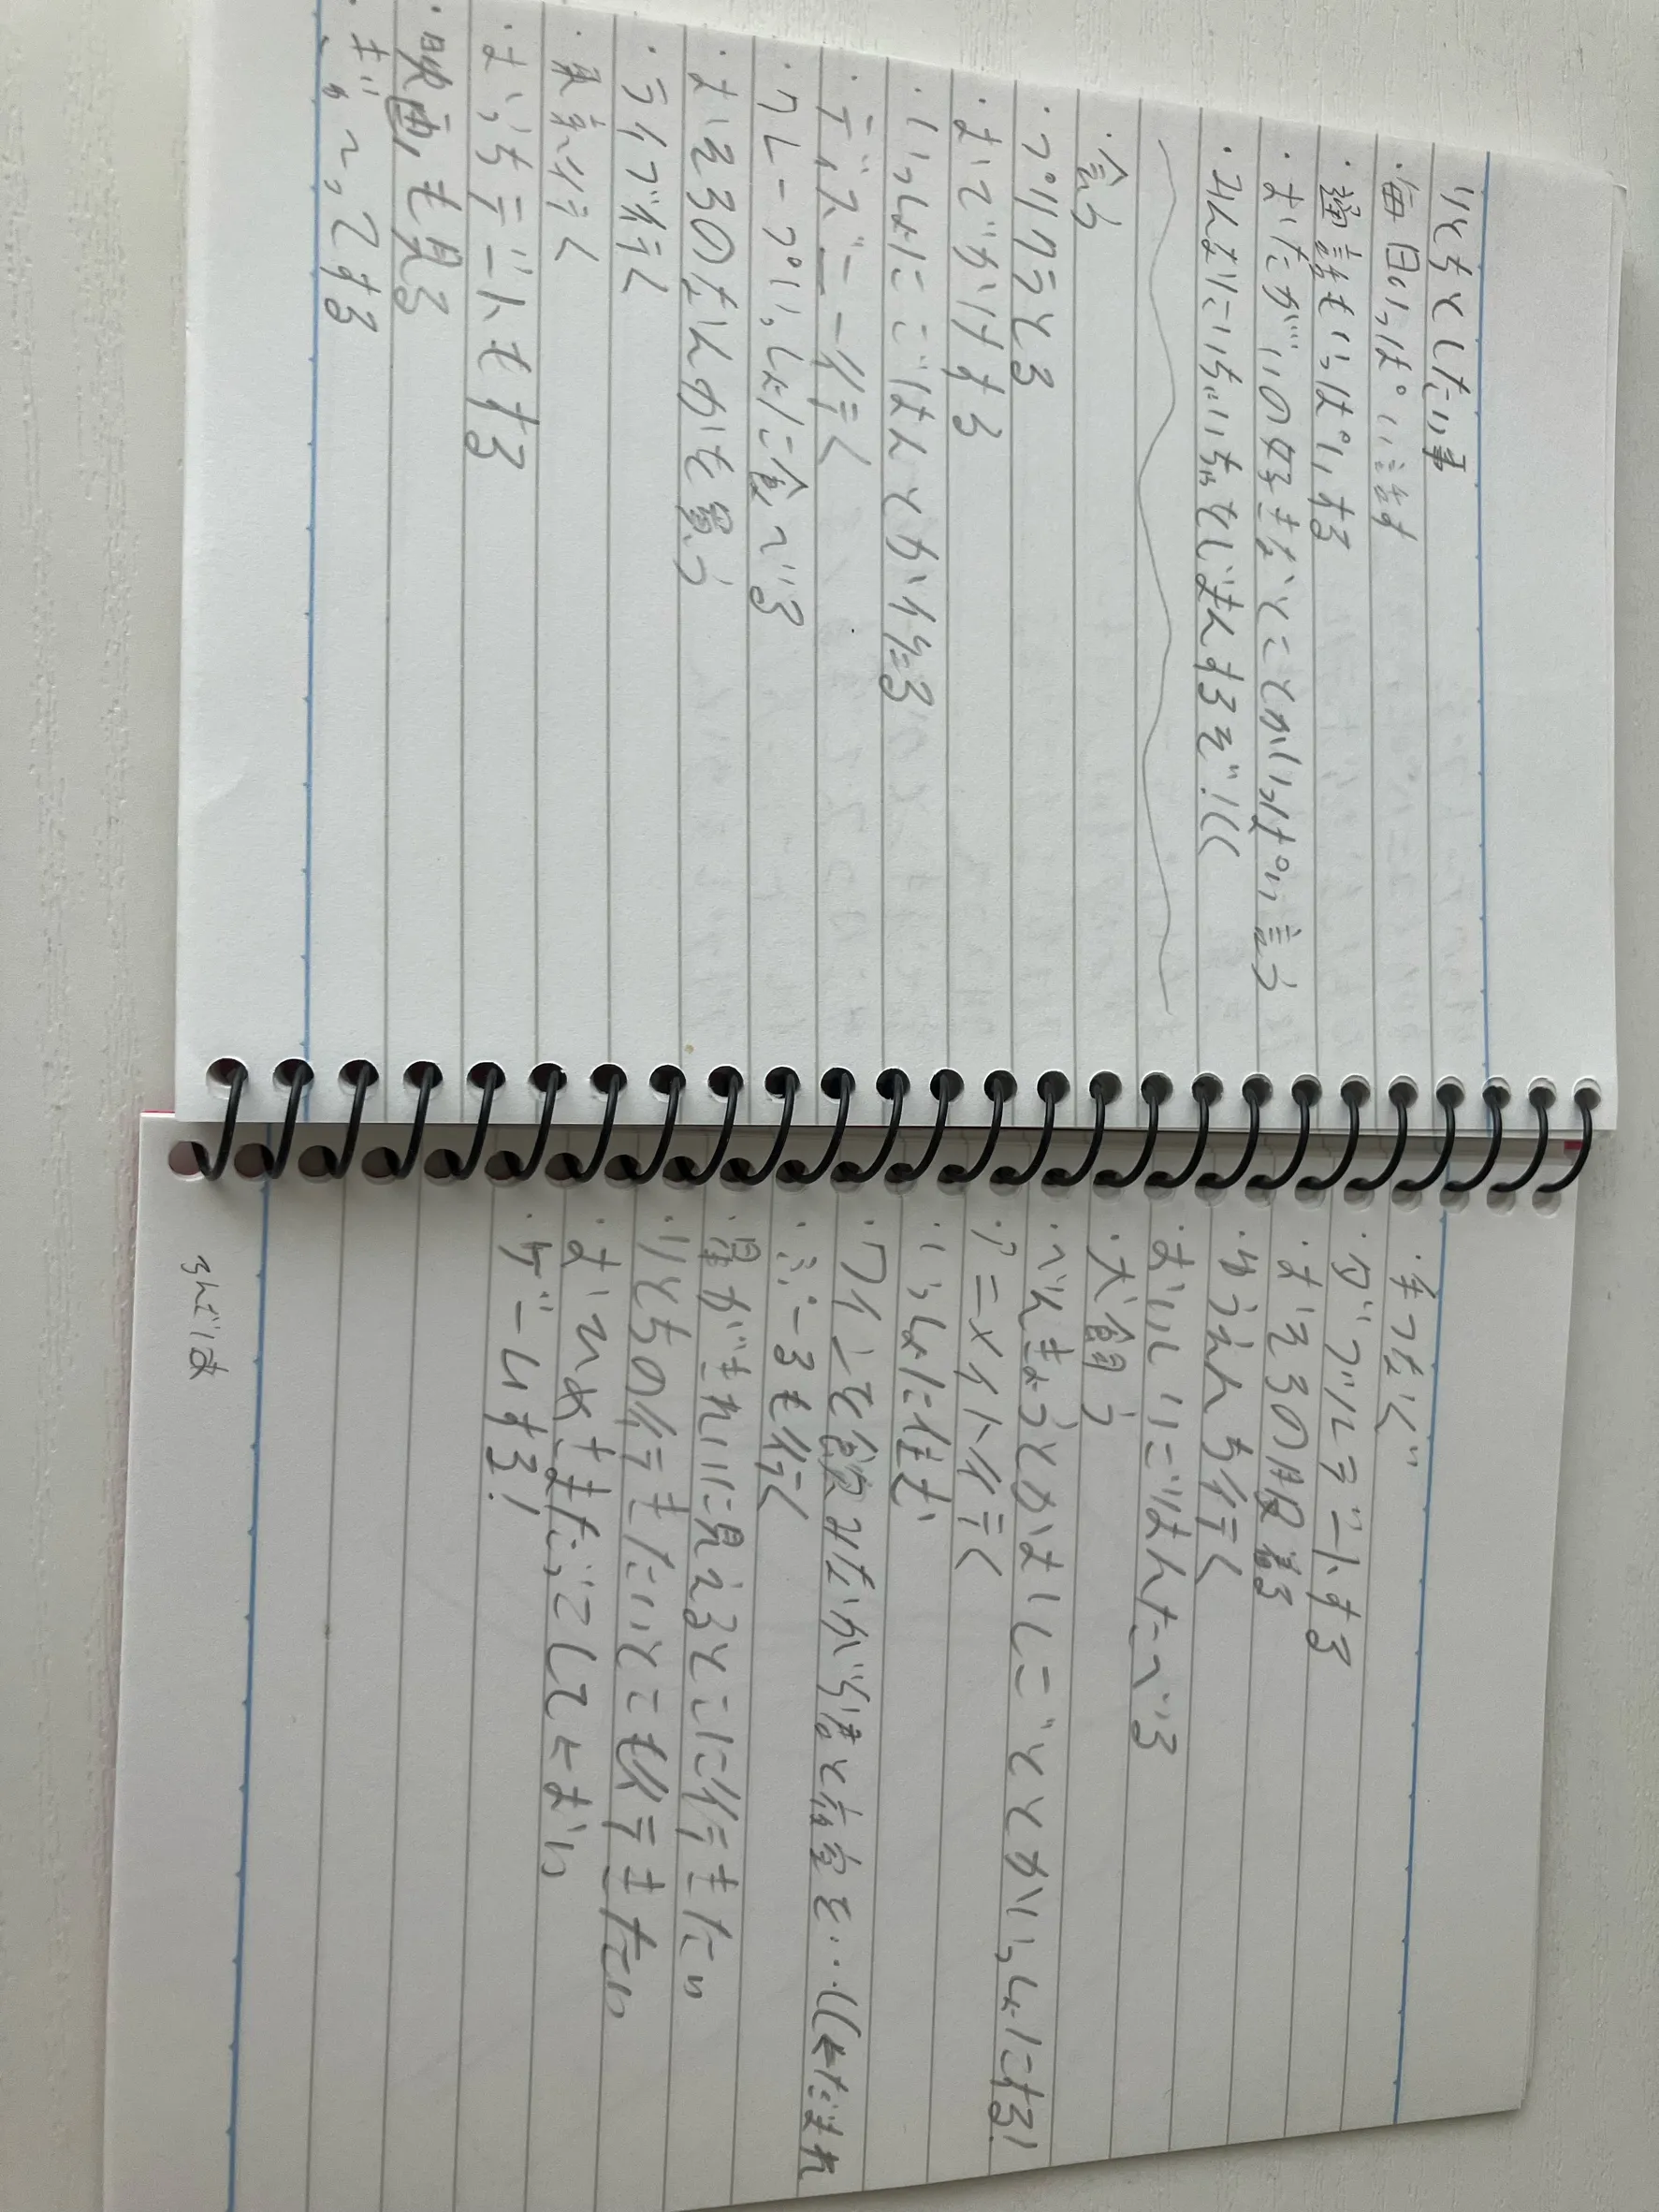 りくちとしたい事
・毎日いっぱい話す
・通話もいっぱいする
・おたがいの好きなどことかいっぱい言う
・みんなにいちゃいちゃをじまんするぞ!(((
・会う
・プリクラとる
・おでかけする
・いっしょにごはんとか作る
・ディズニー行く
・クレープいっしょに食べる
・おそろのなんかを買う
・ライブ行く
・東京行く
・おうちデートもする
・映画も見る
・ぎゅ〜ってする
・手つなぐ
・ダブルデートする
・おそろの服着る
・ゆうえんち行く
・おいしいごはんたべる
・犬飼う
・べんきょうとかおしごととかいっしょにする!
・アニメイト行く
・いっしょに住む
・ワインを飲みながら僕と夜空を…(((だまれ
・ぷーるも行く
・星がきれいに見えるとこに行きたい
・りくちの行きたいとこも行きたい
・おひめさまだっこしてもらい
・ゲームする!